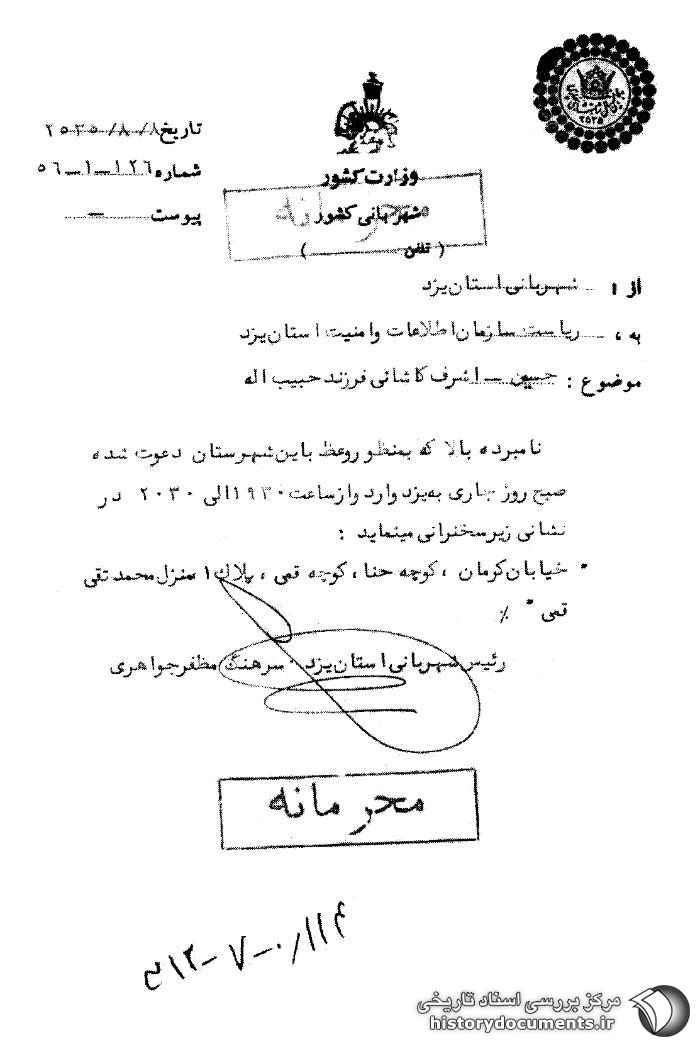 تاریخ ۲۵۳۵/۸/۸
شماره ۱۲۶-۱-۵٦
پیوست -
وزارت کشور
شهربانی کشور
محرمانه
( تلفن )
از : شهربانی استان یزد
به ، ریاست سازمان اطلاعات و امنیت استان یزد
موضوع : حسین - اشرف کاشانی فرزند حبیب اله
نامبرده بالا که بمنظور وعظ باین شهرستان دعوت شده
صبح روز جاری به یزد وارد و از ساعت ۱۹۳۰ الی ۲۰۳۰ در
نشانی زیر سخنرانی مینماید :
" خیابان کرمان ، کوچه حنا ، کوچه قمی ، پلاك ۱ منزل محمد تقی
قمی " ٪
رئیس شهربانی استان یزد . سرهنگ مظفر جواهری
محرمانه
مرکز بررسی اسناد تاریخی
historydocuments.ir